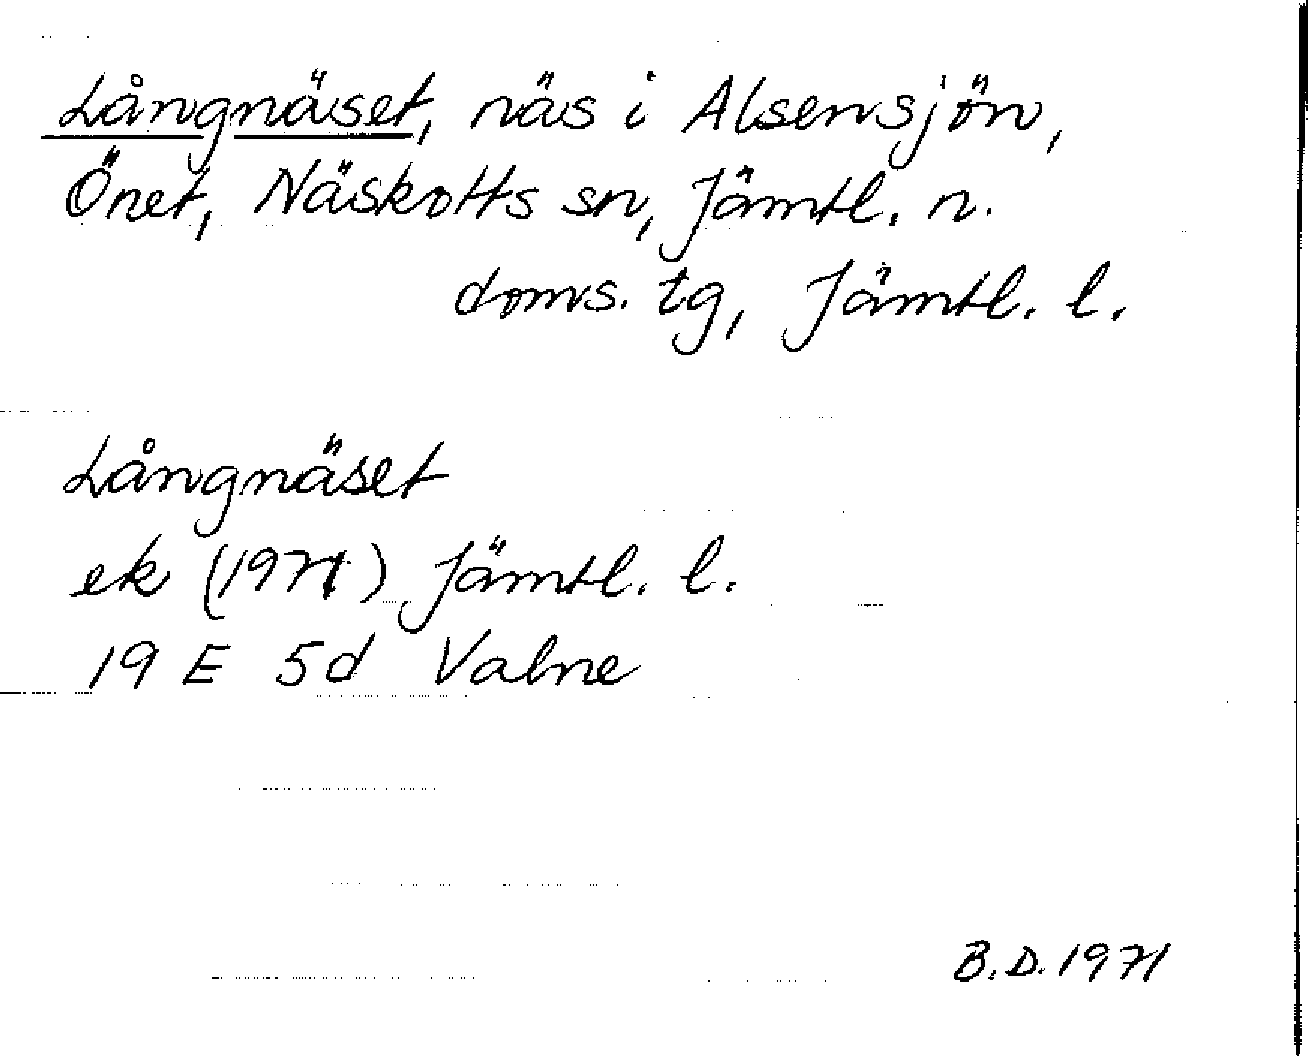 Långnäset, näs i Alsensjön,
Önet, Näskotts sn, Jämtl. n.
doms. tg, Jämtl. l.
Långnäset
ek (1971) Jämtl. l.
19 E 5d Valne
B.D. 1971